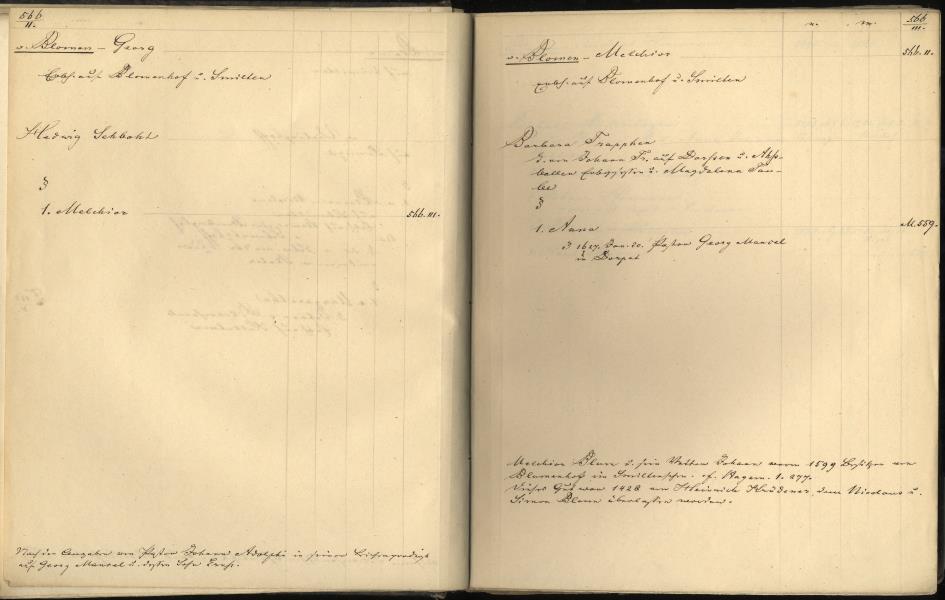 566
II.
v. Blomen - Georg
Erbh. auf Blomenhof u. Smilten
Hedwig Schbohl
§
1. Melchior 566.III.
Nach den Angaben von Pastor Johann Adolphi in seiner Leichenpredigt
auf Georg Mancel u. dessen Sohn
v. m. 566
III.
v. Blomen - Melchior 566.II.
Erbh. auf Blomenhof u. Smilten
Barbara Trapphen
T. von Johann Tr. auf Dorssen u.
Erbgesessen u. Magdalena Tau-
be
§
1. Anna M.559.
1627. Jan. 20. Pastor Georg Mancel
in Dorpat
Melchior Blum u. sein Vetter Johann waren 1599 Besitzer von
Blumenhof im Smiltenschen. cf. Hagem. 1. 277.
Dieses Gut war 1428 von Heinrich Krüdener dem Nicolaus u.
Simon Blum überlassen worden.